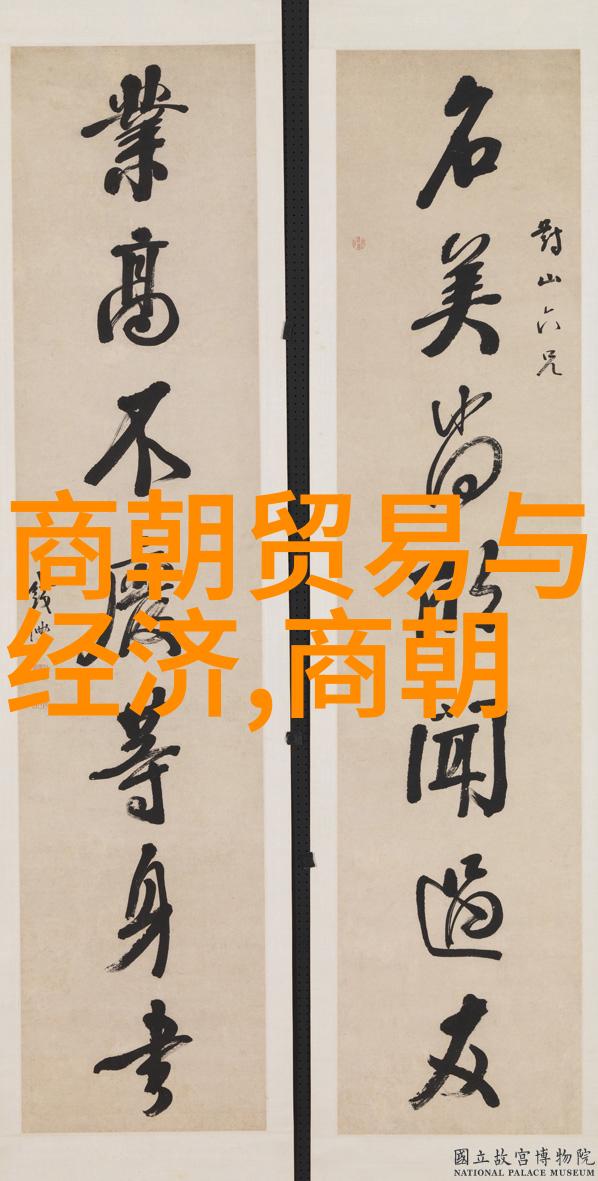 名美尚聞過友
對山六兄
業高不廢等身書
錢灃
商朝贸易与
经济,商朝
國立故宮博物院
NATIONAL PALACE MUSEUM